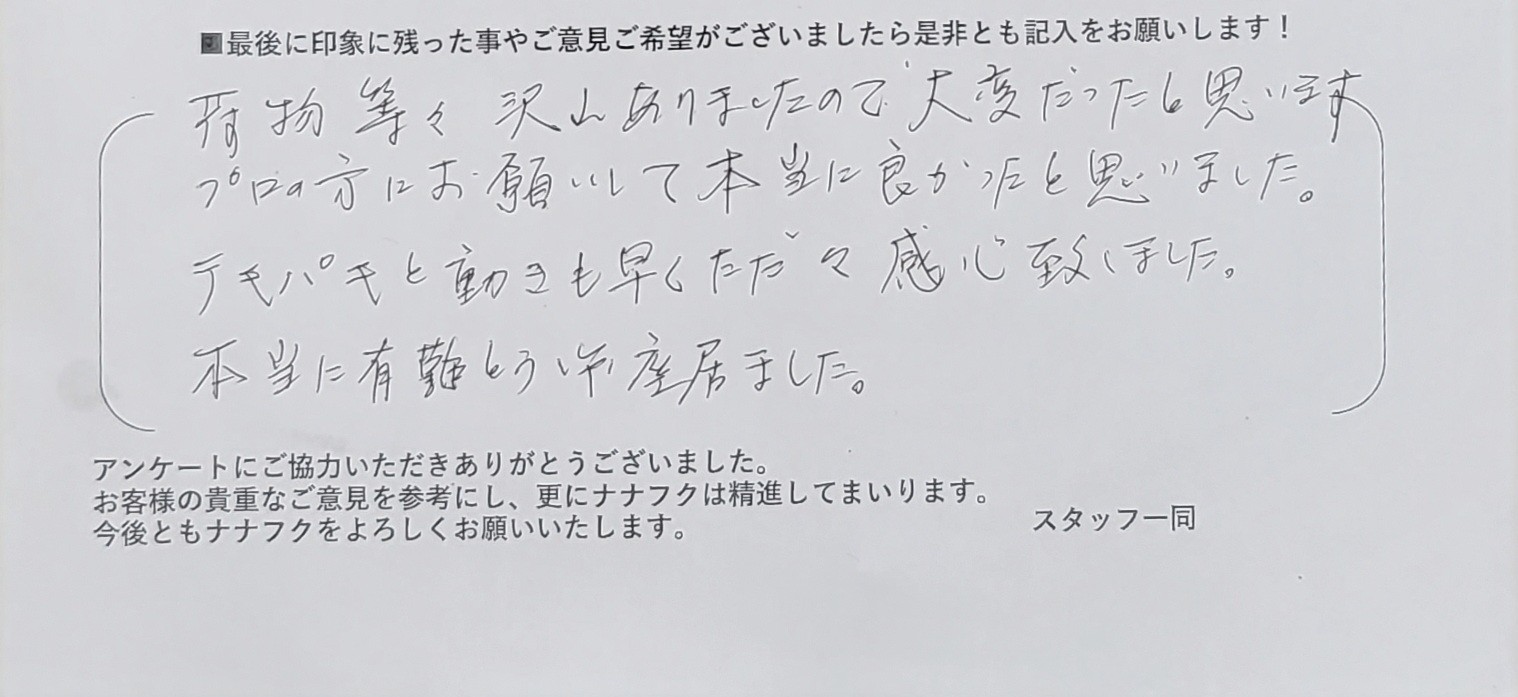 ■最後に印象に残った事やご意見ご希望がございましたら是非とも記入をお願いします!
荷物等々沢山ありましたので大変だったと思います
プロの方にお願いして本当に良かったと思いました。
テキパキと動きも早くただ々感心致しました。
本当に有難とう御座居ました。
アンケートにご協力いただきありがとうございました。
お客様の貴重なご意見を参考にし、更にナナフクは精進してまいります。
今後ともナナフクをよろしくお願いいたします。
スタッフ一同